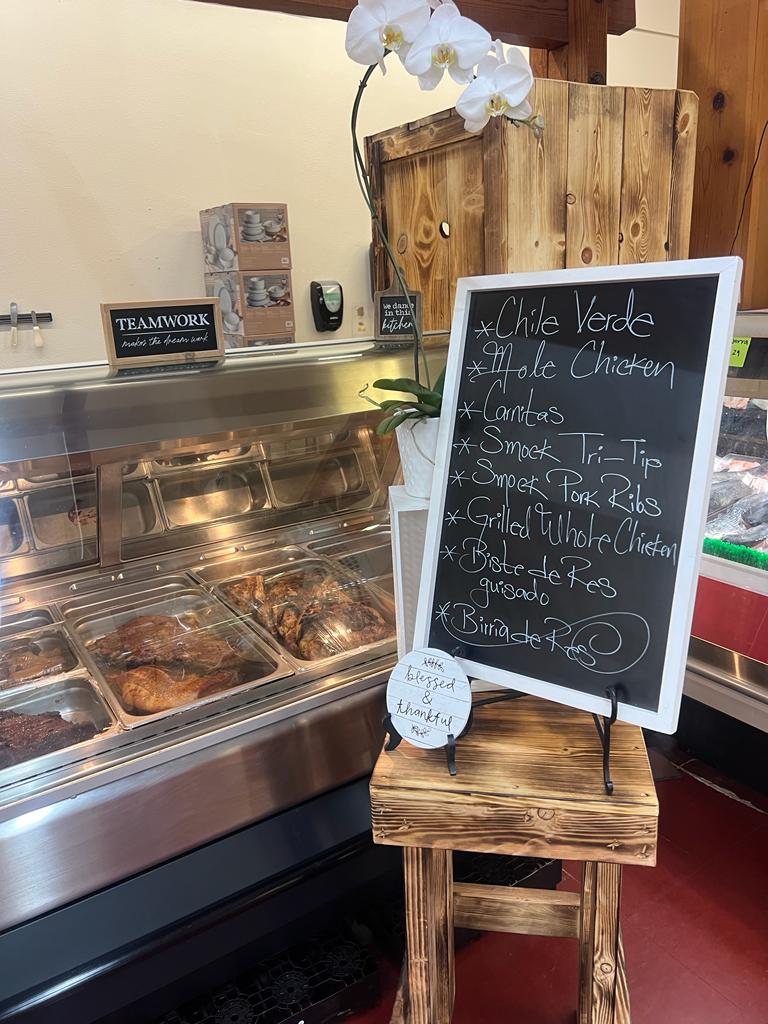 TEAMWORK
makes the dream work
We dance
in this
kitchen
* Chile Verde
* Mole Chicken
* Carnitas
* Smock Tri-Tip
* Smock Pork Ribs
* Grilled Whole Chicken
* Biste de Res
guisado
* Birria de Res
blessed
&
thankful